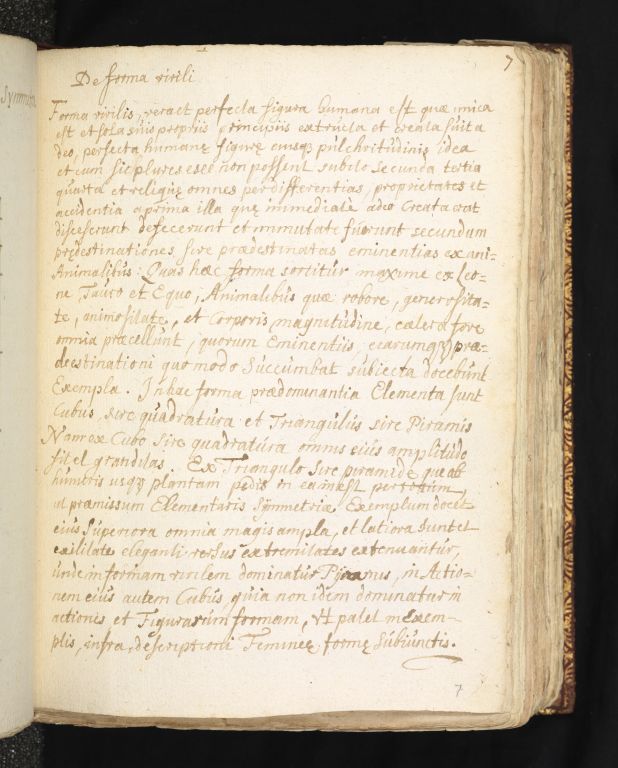 Symmetria
7
De forma virili
Forma virilis, vera et perfecta figura humana est quæ unica
est et sola suis propriis principiis extructa et creata fuit a
deo, perfecta humanę figurę eiusq; pulchritudinis idea
et cum sic plures esse non possent subito secunda tertia
quarta et reliquę omnes per differentias, proprietates et
accidentia a prima illa quę immediate a deo creata erat
discesserunt defecerunt et immutate fuerunt secundum
prędestinationes sive prædestinatas eminentias ex ani-
Animalibus: Quas hæc forma sortitur maxime ex Leo-
ne, Tauro et Equo, Animalibus quæ robore, generosita-
te, animositate, et Corporis magnitudine, cætera fere
omnia præcellunt, quorum Eminentiis, earumq; præ-
deestinationi quomodo Succumbat subiecta docebunt
Exempla. In hac forma prædominantia Elementa sunt
Cubus sive quadratura et Triangulus sive Piramis
Nam ex Cubo sive quadratura omnis eius amplitudo
fit et granditas. Ex Triangulo sive piramide quæ ab
humeris usq; plantam pedis in ea
ut præmissum Elementaris Symmetriæ Exemplum docet
eius Superiora omnia magis ampla, et latiora sunt et
exilitate eleganti versus extremitates extenuantur,
unde in formam virilem dominatur Piramis, in Actio-
nem eius autem Cubus, quia non idem dominatur in
actionis et Figurarum formam, ut patet in exem-
plis, infra, descriptioni Femineę formę Subiunctis.
7